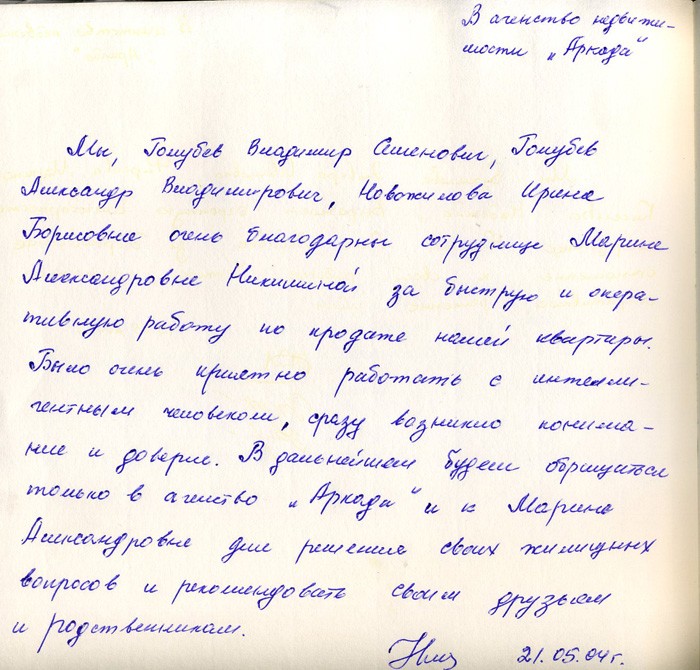 В агенство недвижи-
мости „Аркада"
Мы, Голубев Владимир Семенович, Голубев
Александр Владимирович, Новожилова Ирина
Борисовна очень благодарны сотруднице Марине
Александровне Никишиной за быструю и опера-
тивную работу по продаже нашей квартиры.
Было очень приятно работать с интелли-
гентным человеком, сразу возникло понима-
ние и доверие. В дальнейшем будем обращаться
только в агенство „Аркада" и к Марине
Александровне для решения своих жилищных
вопросов и рекомендовать своим друзьям
и родственникам.
21.05.04г.